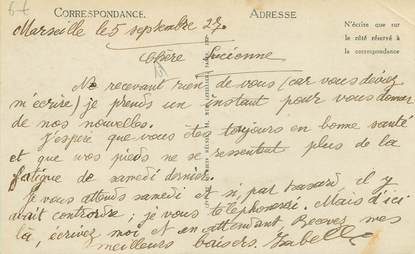 CORRESPONDANCE. ADRESSE
Marseille le 5 septembre 27.
N'écrire que sur
le côté réservé à
la correspondance
Chère Lucienne
Ne recevant rien de vous (car vous deviez
m'écrire) je prends un instant pour vous donner
de nos nouvelles.
J'espère que vous êtes toujours en bonne santé
et que vos pieds ne se ressentent plus de la
fatigue de samedi dernier.
Je vous attends samedi et si par hasard, il y
avait contrordre; je vous téléphonerai. Mais d'ici
là, écrivez moi et en attendant Recevez mes
meilleurs baisers. Isabelle